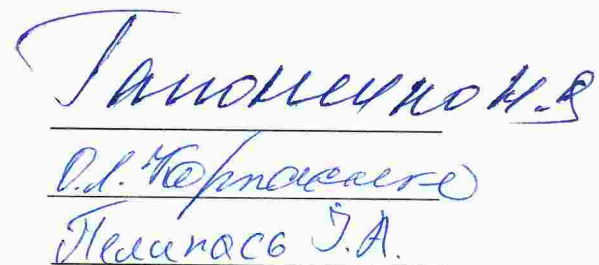 Гапоненко Н.Я
О.Л. Карпасенко
Пелипась І.А.